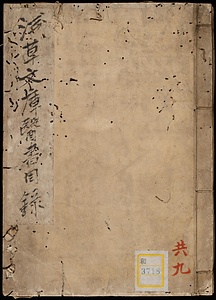 浅草文庫醫書目錄
共九
和
3718